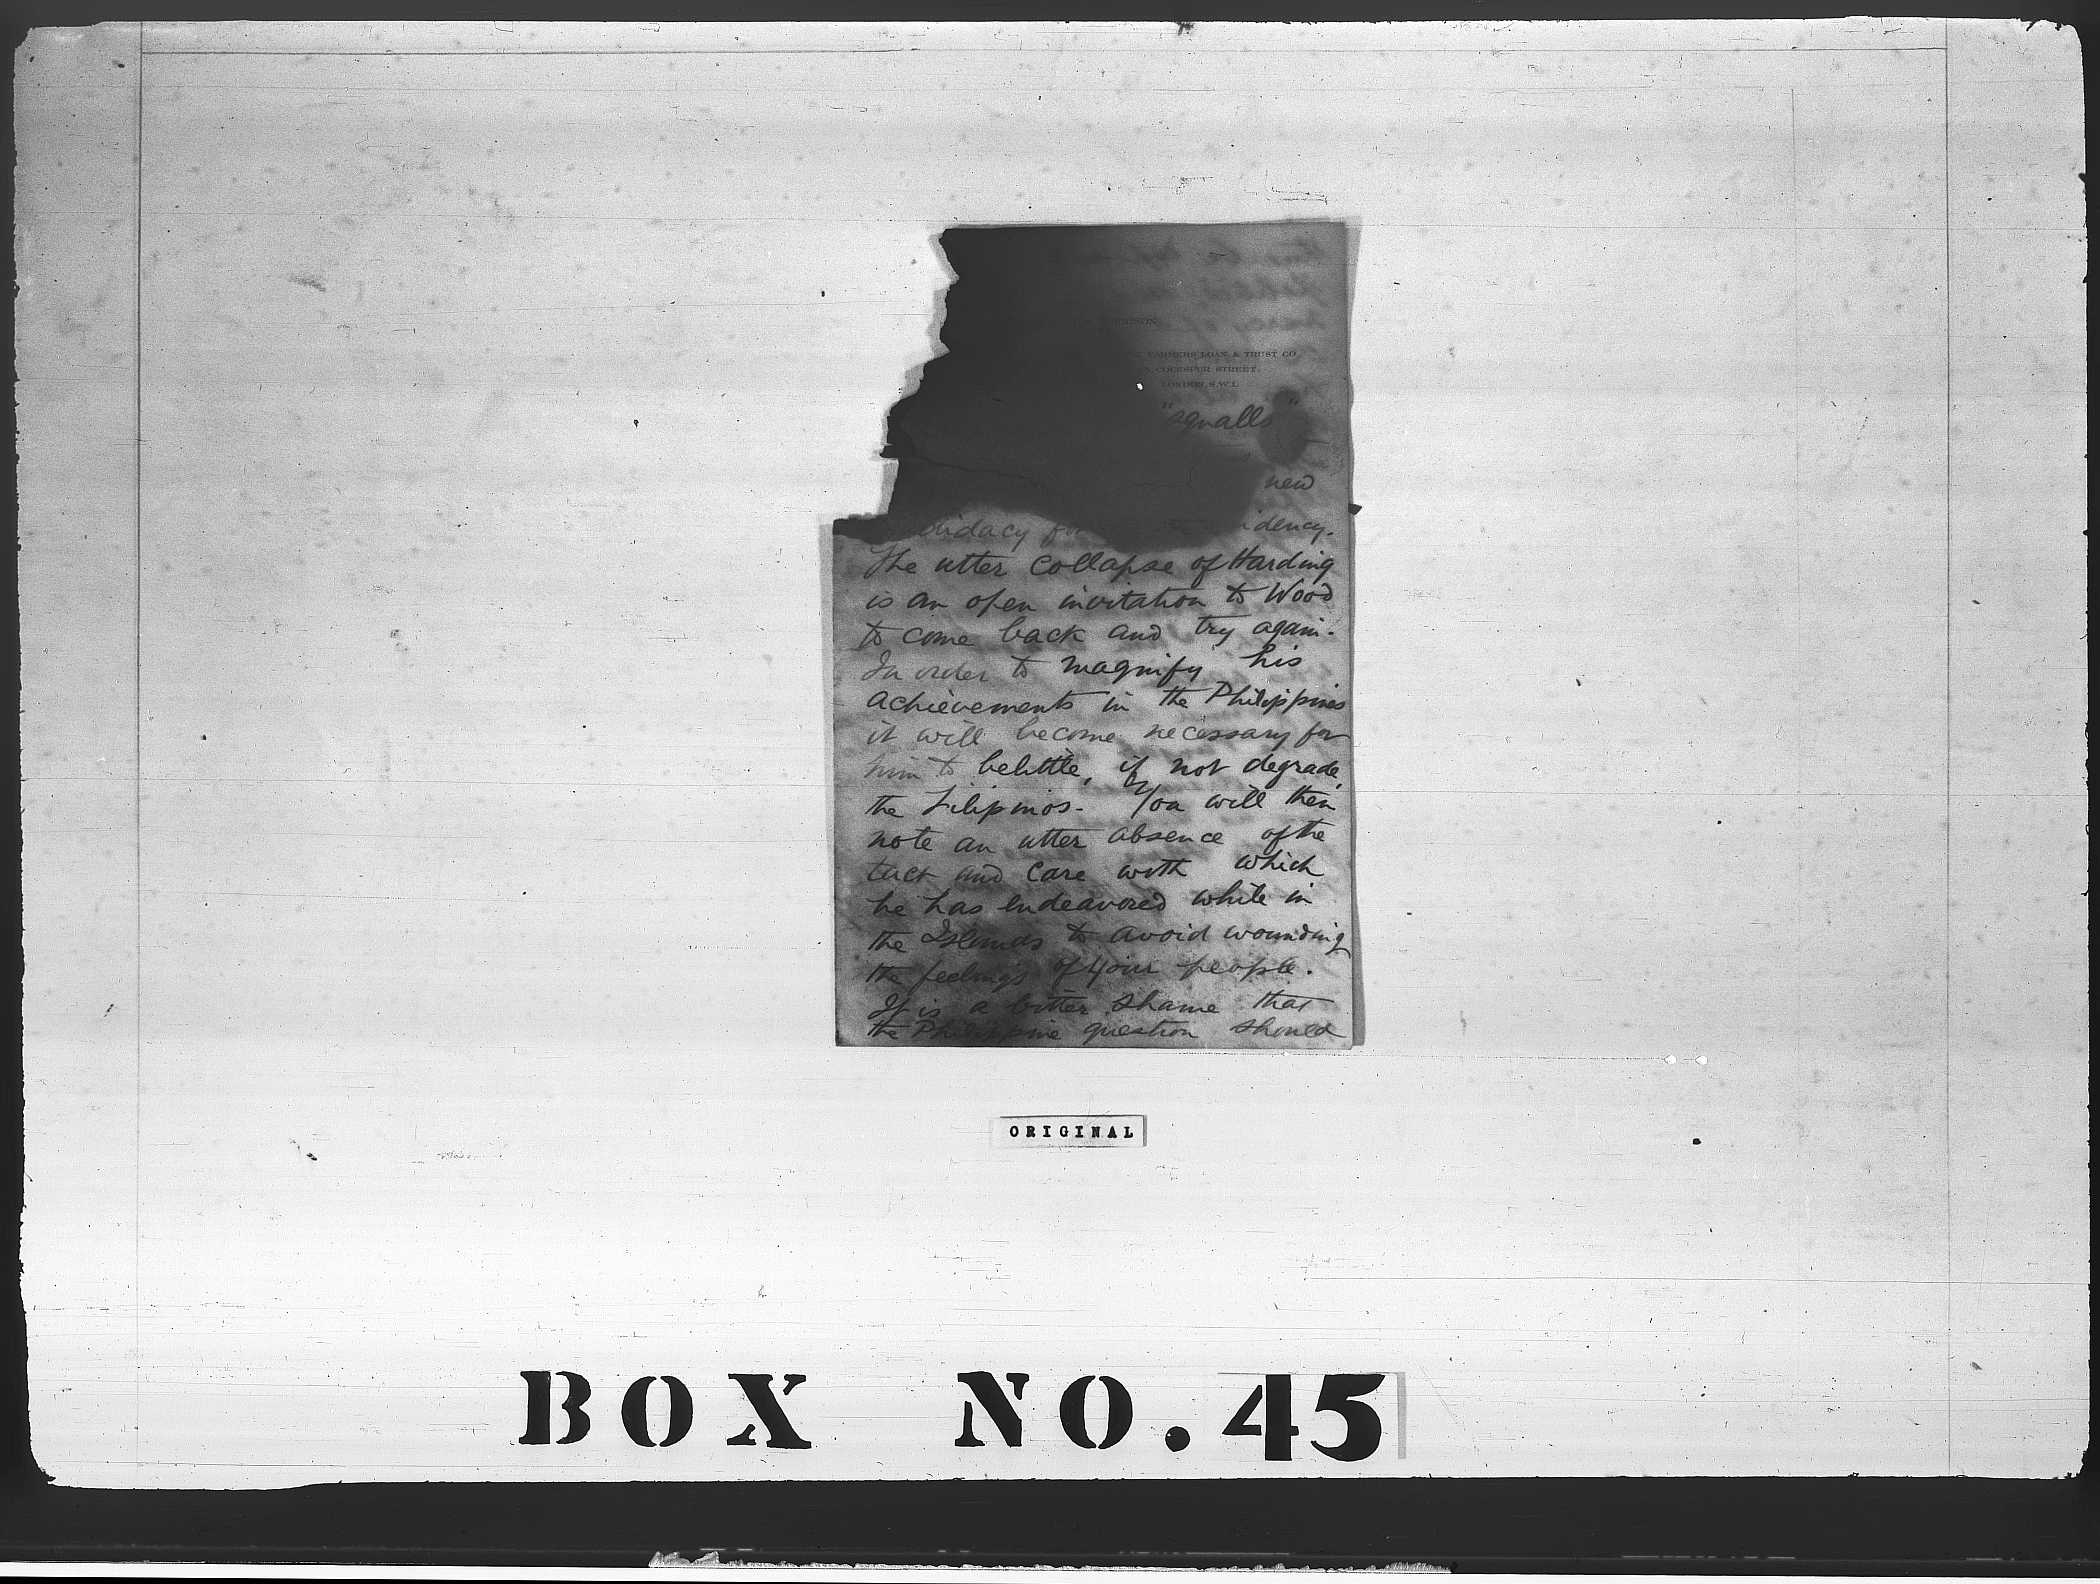 FARMERS LOAN & TRUST CO
COCKSPUR STREET,
LONDON, S.W.1.
"squalls"
new
The utter collapse of Harding
is an open invitation to Wood
to come back and try again.
In order to magnify his
achievements in the Philippines
it will become necessary for
him to belittle, if not degrade
the Filipinos. You will then
note an utter absence of the
tact and care with which
he has endeavored while in
the Islands to avoid wounding
the feelings of your people.
It is a bitter shame that
the Philippine question should
ORIGINAL
BOX NO. 45